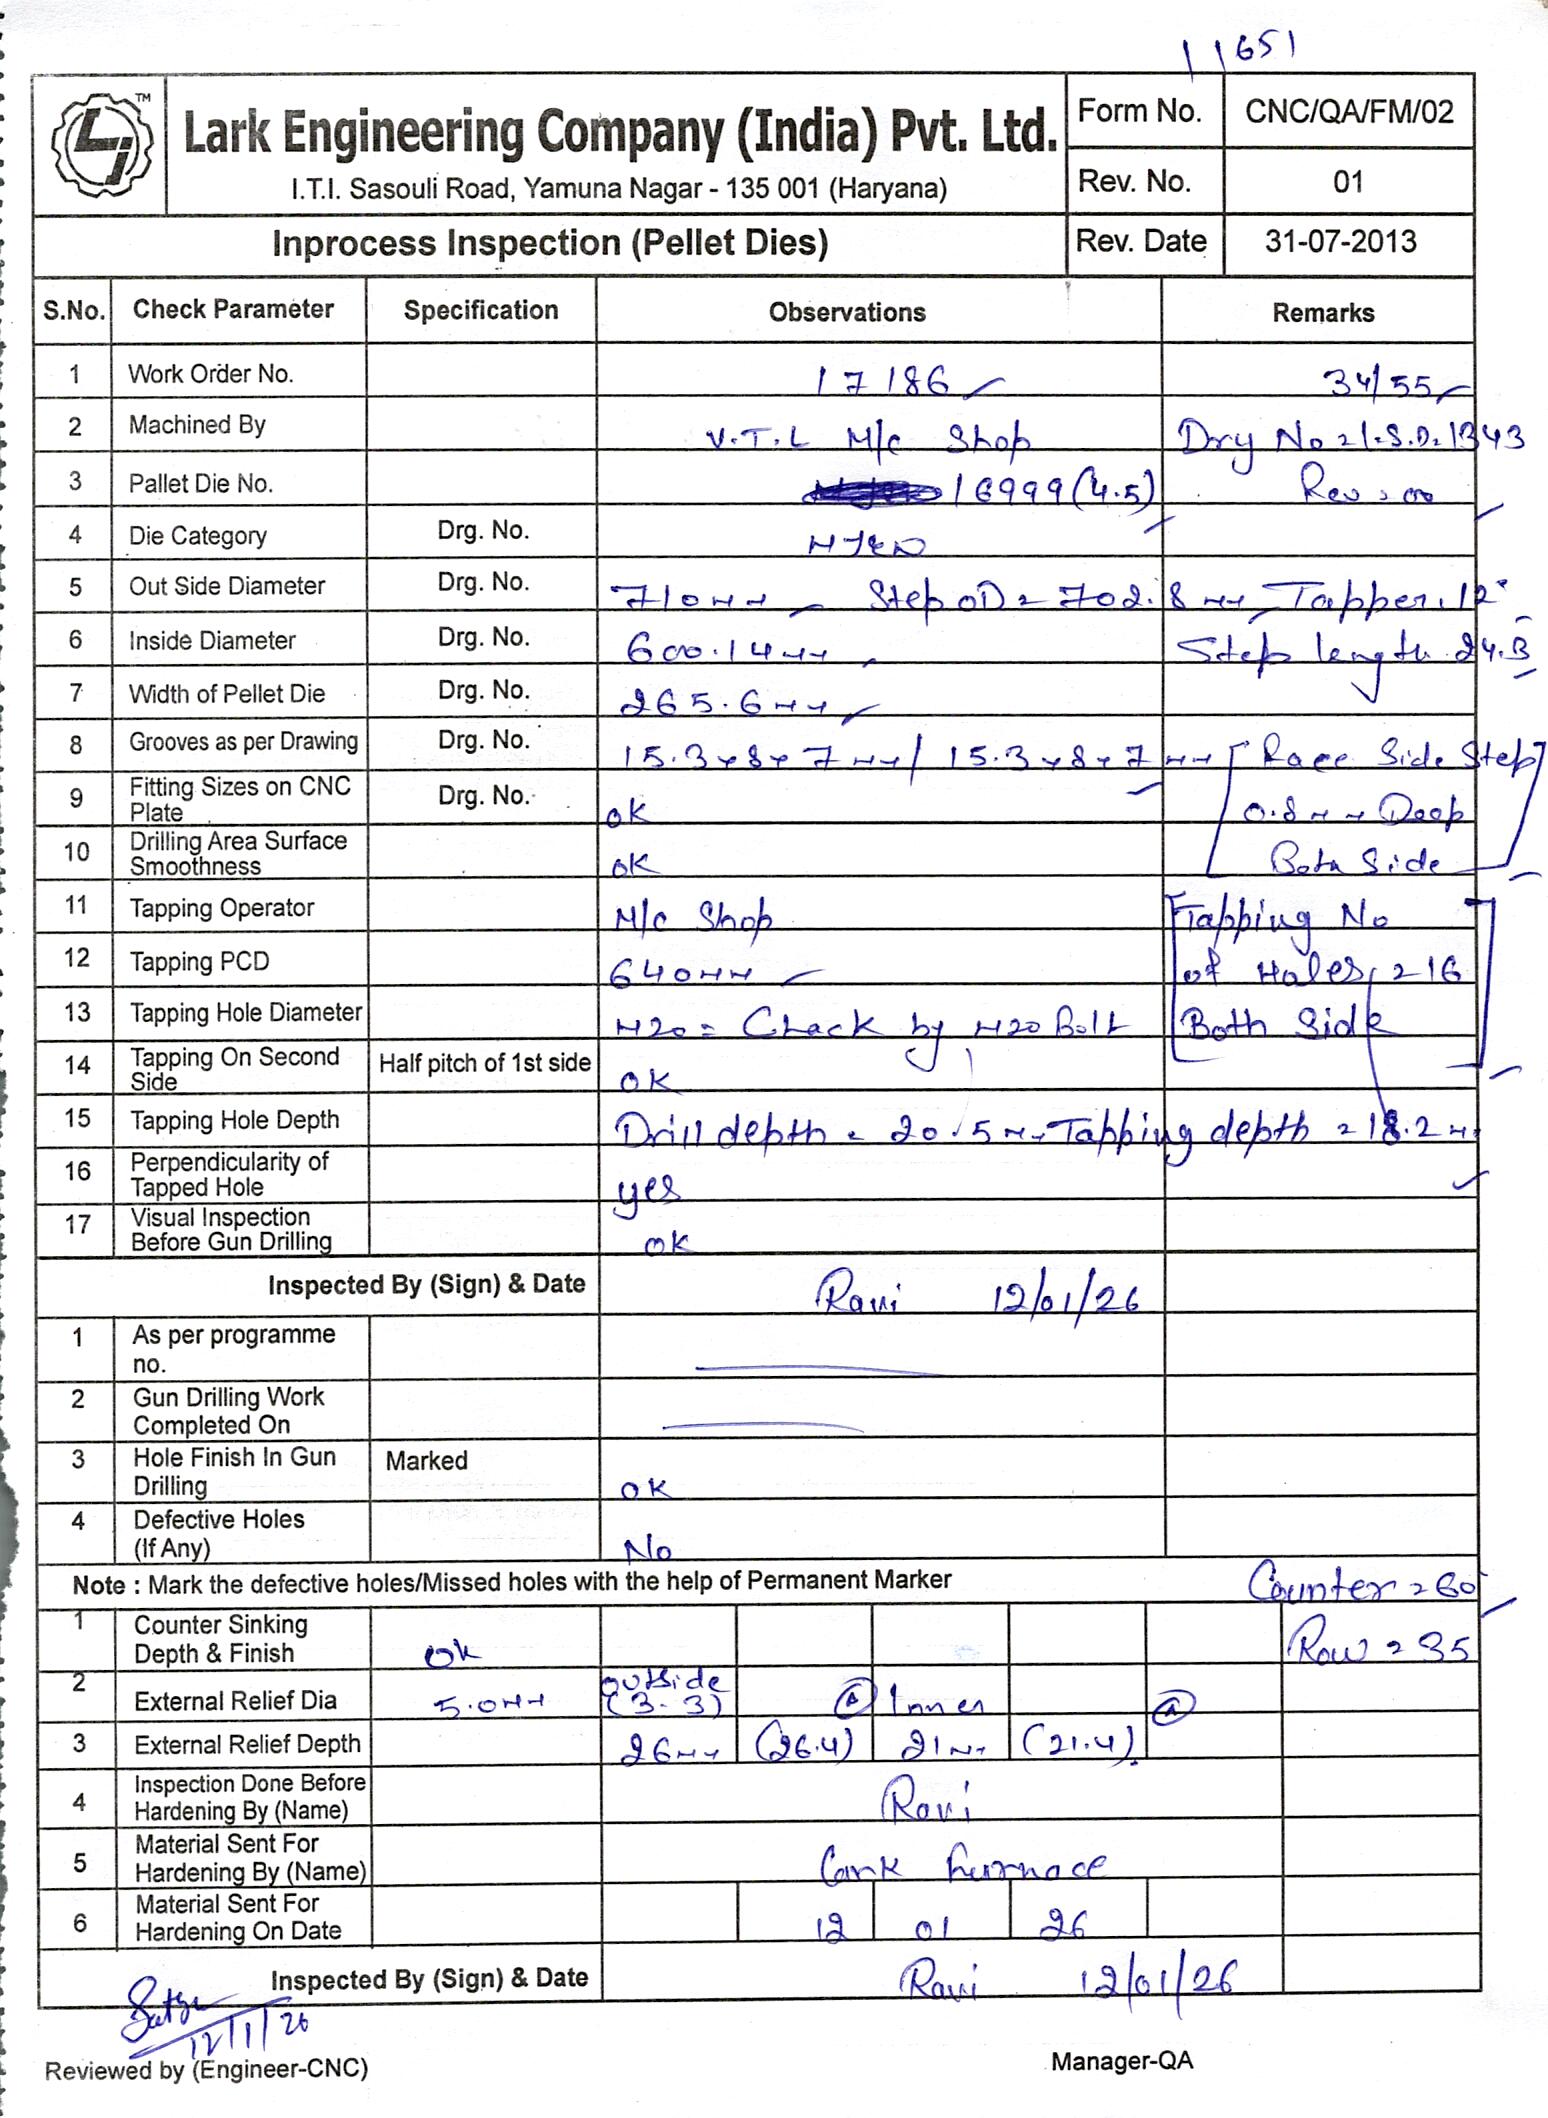 11651
LJ TM
Lark Engineering Company (India) Pvt. Ltd.
I.T.I. Sasouli Road, Yamuna Nagar - 135 001 (Haryana)
Form No. CNC/QA/FM/02
Rev. No. 01
Inprocess Inspection (Pellet Dies) Rev. Date 31-07-2013
S.No. Check Parameter Specification Observations Remarks
1 Work Order No. 17186 34/55
2 Machined By V.T.L M/c Shop Dry No = L.S.D. 1343
3 Pallet Die No. 16999 (4.5) Rev = 00
4 Die Category Drg. No.
5 Out Side Diameter Drg. No. 710MM Step OD = 702.8 MM Tapper. 12°
6 Inside Diameter Drg. No. 600.14MM Step length 24.3
7 Width of Pellet Die Drg. No. 265.6MM
8 Grooves as per Drawing Drg. No. 15.3x8x7MM / 15.3x8x7MM [Race Side Step
9 Fitting Sizes on CNC Plate Drg. No. OK 0.8MM Deep
10 Drilling Area Surface Smoothness OK Both Side]
11 Tapping Operator M/c Shop [Tapping No
12 Tapping PCD 640MM of Holes = 16
13 Tapping Hole Diameter M20 = Chack by M20 Bolt Both Side]
14 Tapping On Second Side Half pitch of 1st side OK
15 Tapping Hole Depth Drill depth = 20.5 MM Tapping depth = 18.2 MM
16 Perpendicularity of Tapped Hole yes
17 Visual Inspection Before Gun Drilling OK
Inspected By (Sign) & Date Ravi 12/01/26
1 As per programme no.
2 Gun Drilling Work Completed On
3 Hole Finish In Gun Drilling Marked OK
4 Defective Holes (If Any) No
Note : Mark the defective holes/Missed holes with the help of Permanent Marker Counter = 60
1 Counter Sinking Depth & Finish Ok Row = 35
2 External Relief Dia 5.0MM outside (3-3) Inner
3 External Relief Depth 26MM (26.4) 21MM (21.4)
4 Inspection Done Before Hardening By (Name) Ravi
5 Material Sent For Hardening By (Name) Lark furnace
6 Material Sent For Hardening On Date 12 01 26
Inspected By (Sign) & Date Ravi 12/01/26
12/1/26
Reviewed by (Engineer-CNC) Manager-QA